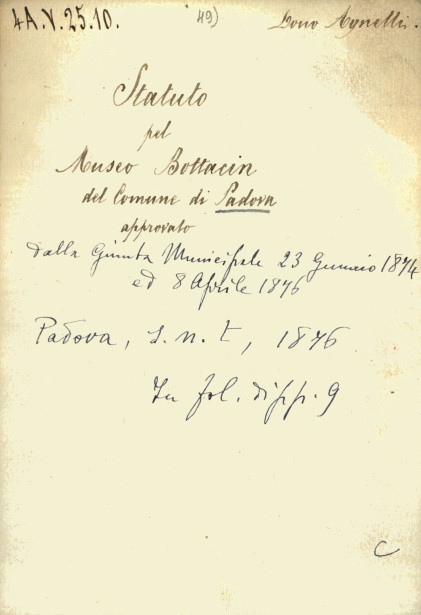 4A.V.25.10. 49) Dono Agnelli.
Statuto
pel
Museo Bottacin
del Comune di Padova
approvato
dalla Giunta Municipale 23 Gennaio 1874
ed 8 Aprile 1876
Padova, s. n. t, 1876
In fol. di pp. 9
C